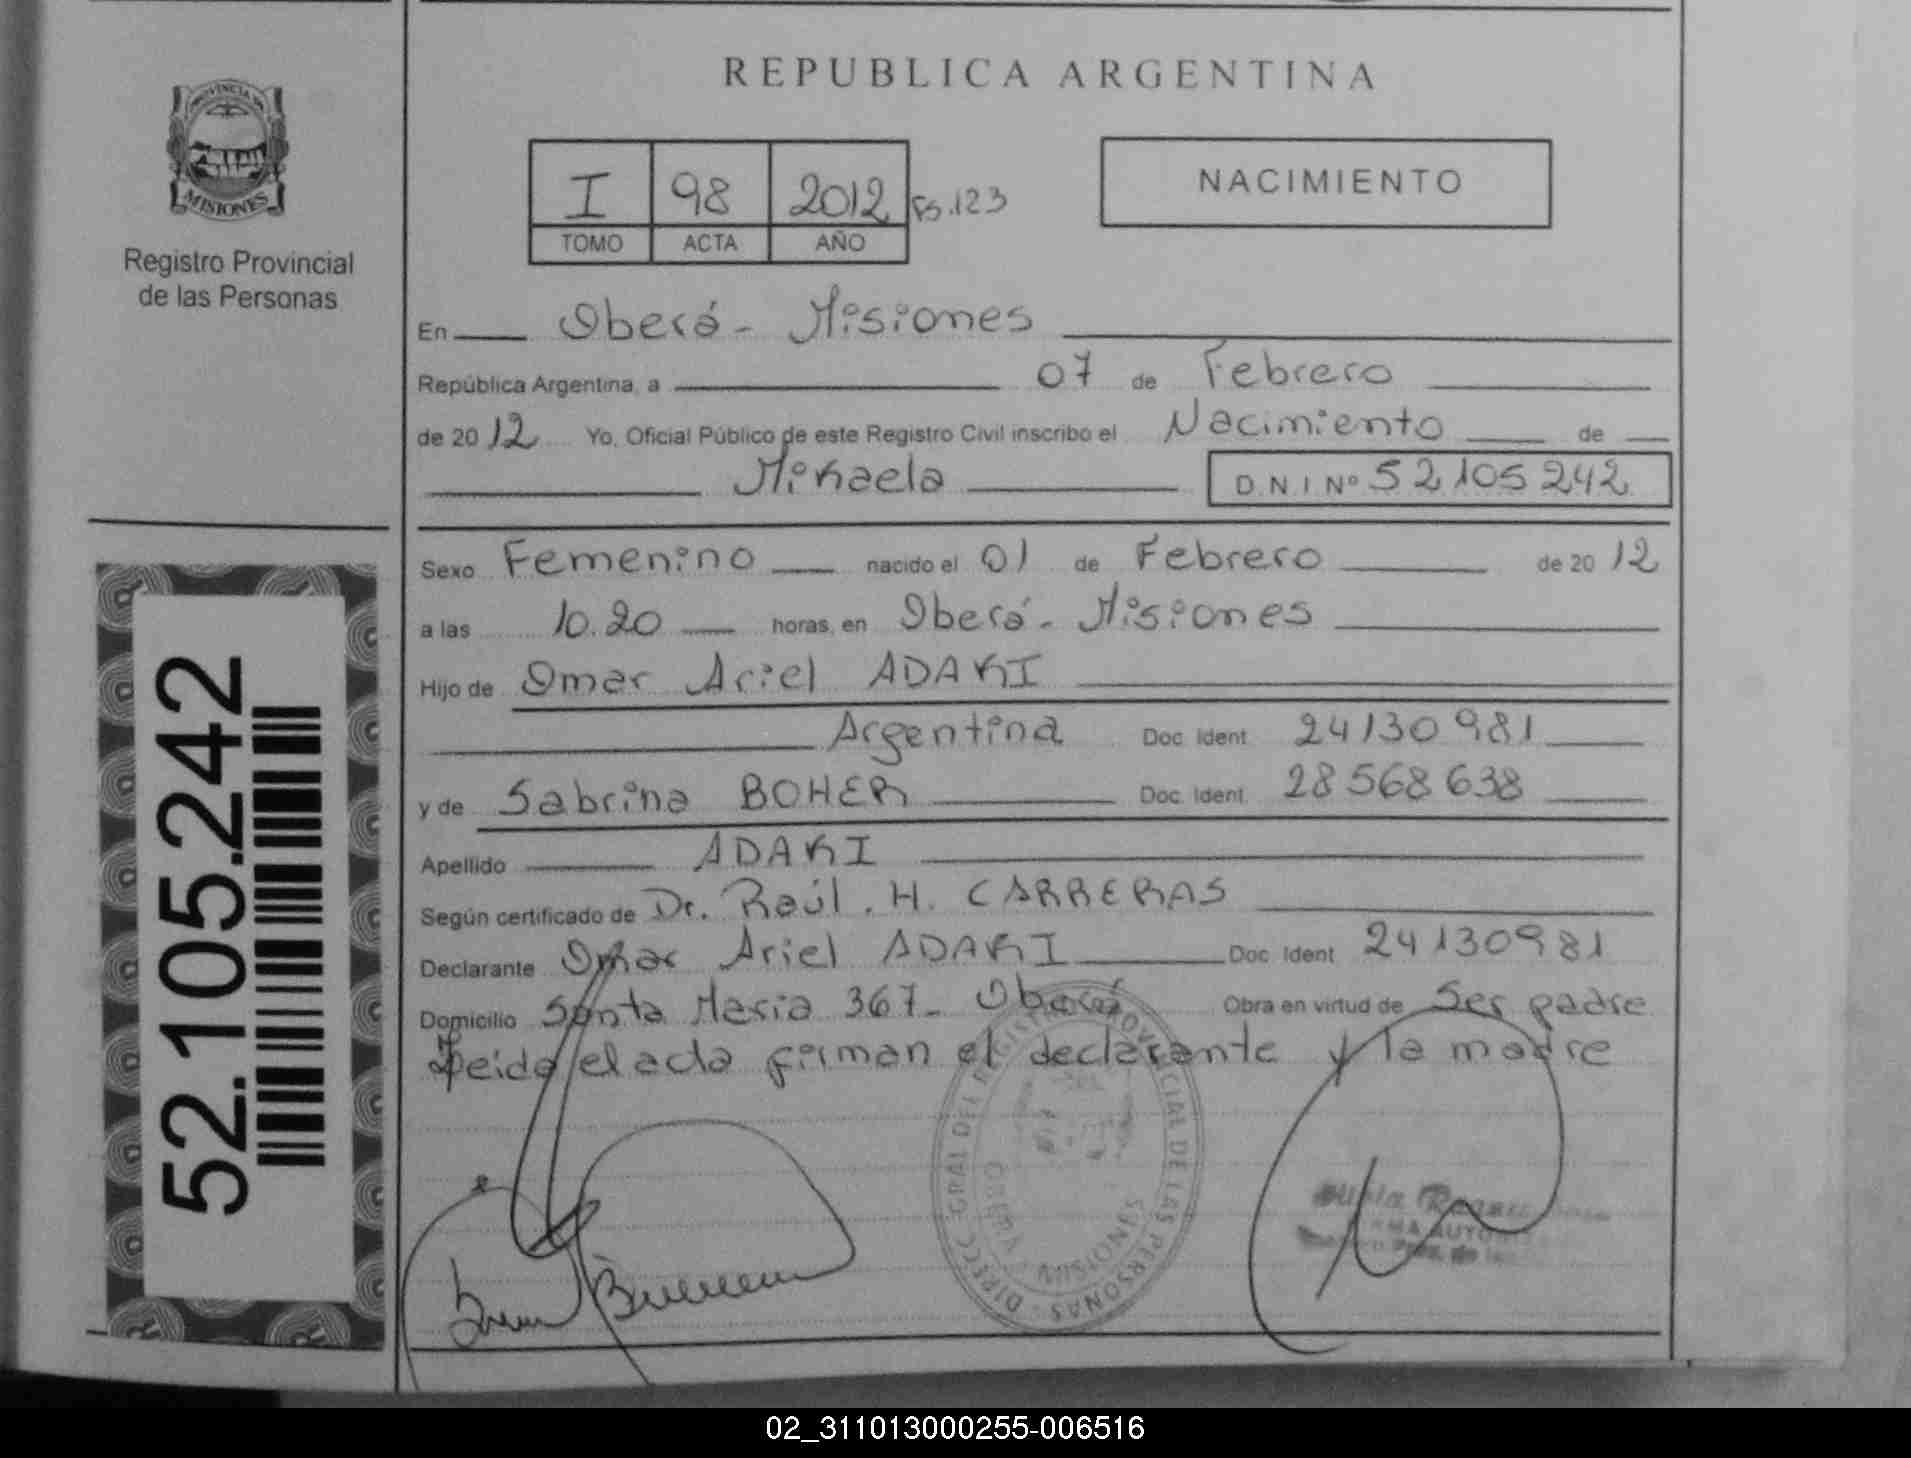 REPUBLICA ARGENTINA
PROVINCIA DE
MISIONES
Registro Provincial
de las Personas
I 98 2012 Fs.123
TOMO ACTA AÑO
NACIMIENTO
En Oberá - Misiones
República Argentina, a 07 de Febrero
de 2012 Yo, Oficial Público de este Registro Civil inscribo el Nacimiento de
Mikaela D.N.I Nº 52105242
Sexo Femenino nacido el 01 de Febrero de 2012
a las 10.20 horas, en Oberá - Misiones
Hijo de Omar Ariel ADAKI
Argentina Doc. Ident. 24130981
y de Sabrina BOHER Doc. Ident. 28568638
Apellido ADAKI
Según certificado de Dr. Raúl. H. CARRERAS
Declarante Omar Ariel ADAKI Doc. Ident. 24130981
Domicilio Santa Maria 367 - Oberá Obra en virtud de Ser padre
Leida el acta firman el declarante y la madre
DIREC. GRAL DEL REGISTRO PROVINCIAL DE LAS PERSONAS
OBERA MISIONES
52.105.242
02_311013000255-006516